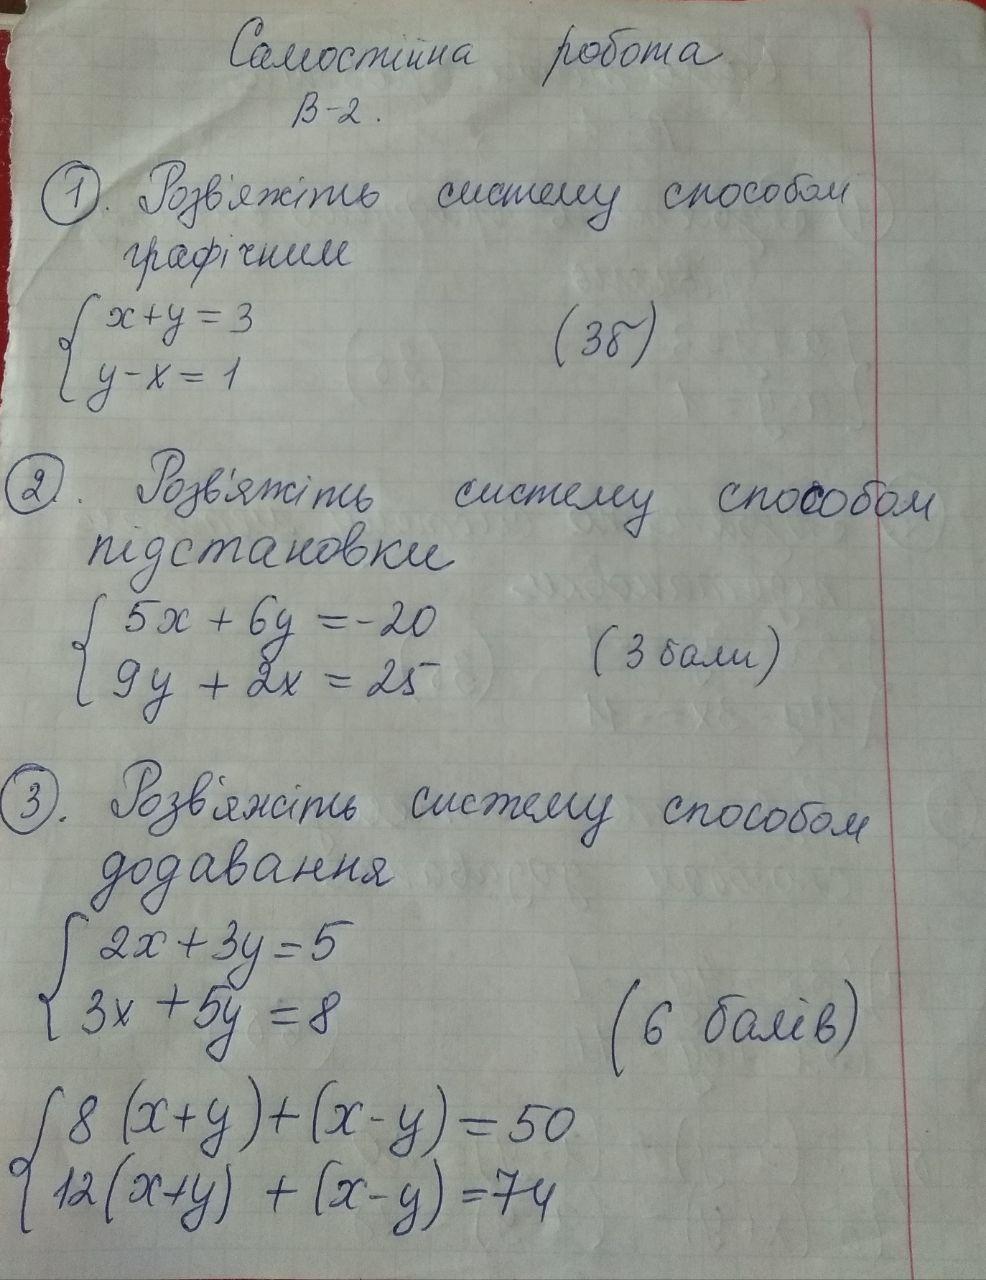 Самостійна робота
В-2.
1. Розв'яжіть систему способом
графічним
x+y=3
y-x=1
(3б)
2. Розв'яжіть систему способом
підстановки
5x+6y=-20
9y+2x=25
(3 бали)
3. Розв'яжіть систему способом
додавання
2x+3y=5
3x+5y=8
(6 балів)
8(x+y)+(x-y)=50
12(x+y)+(x-y)=74